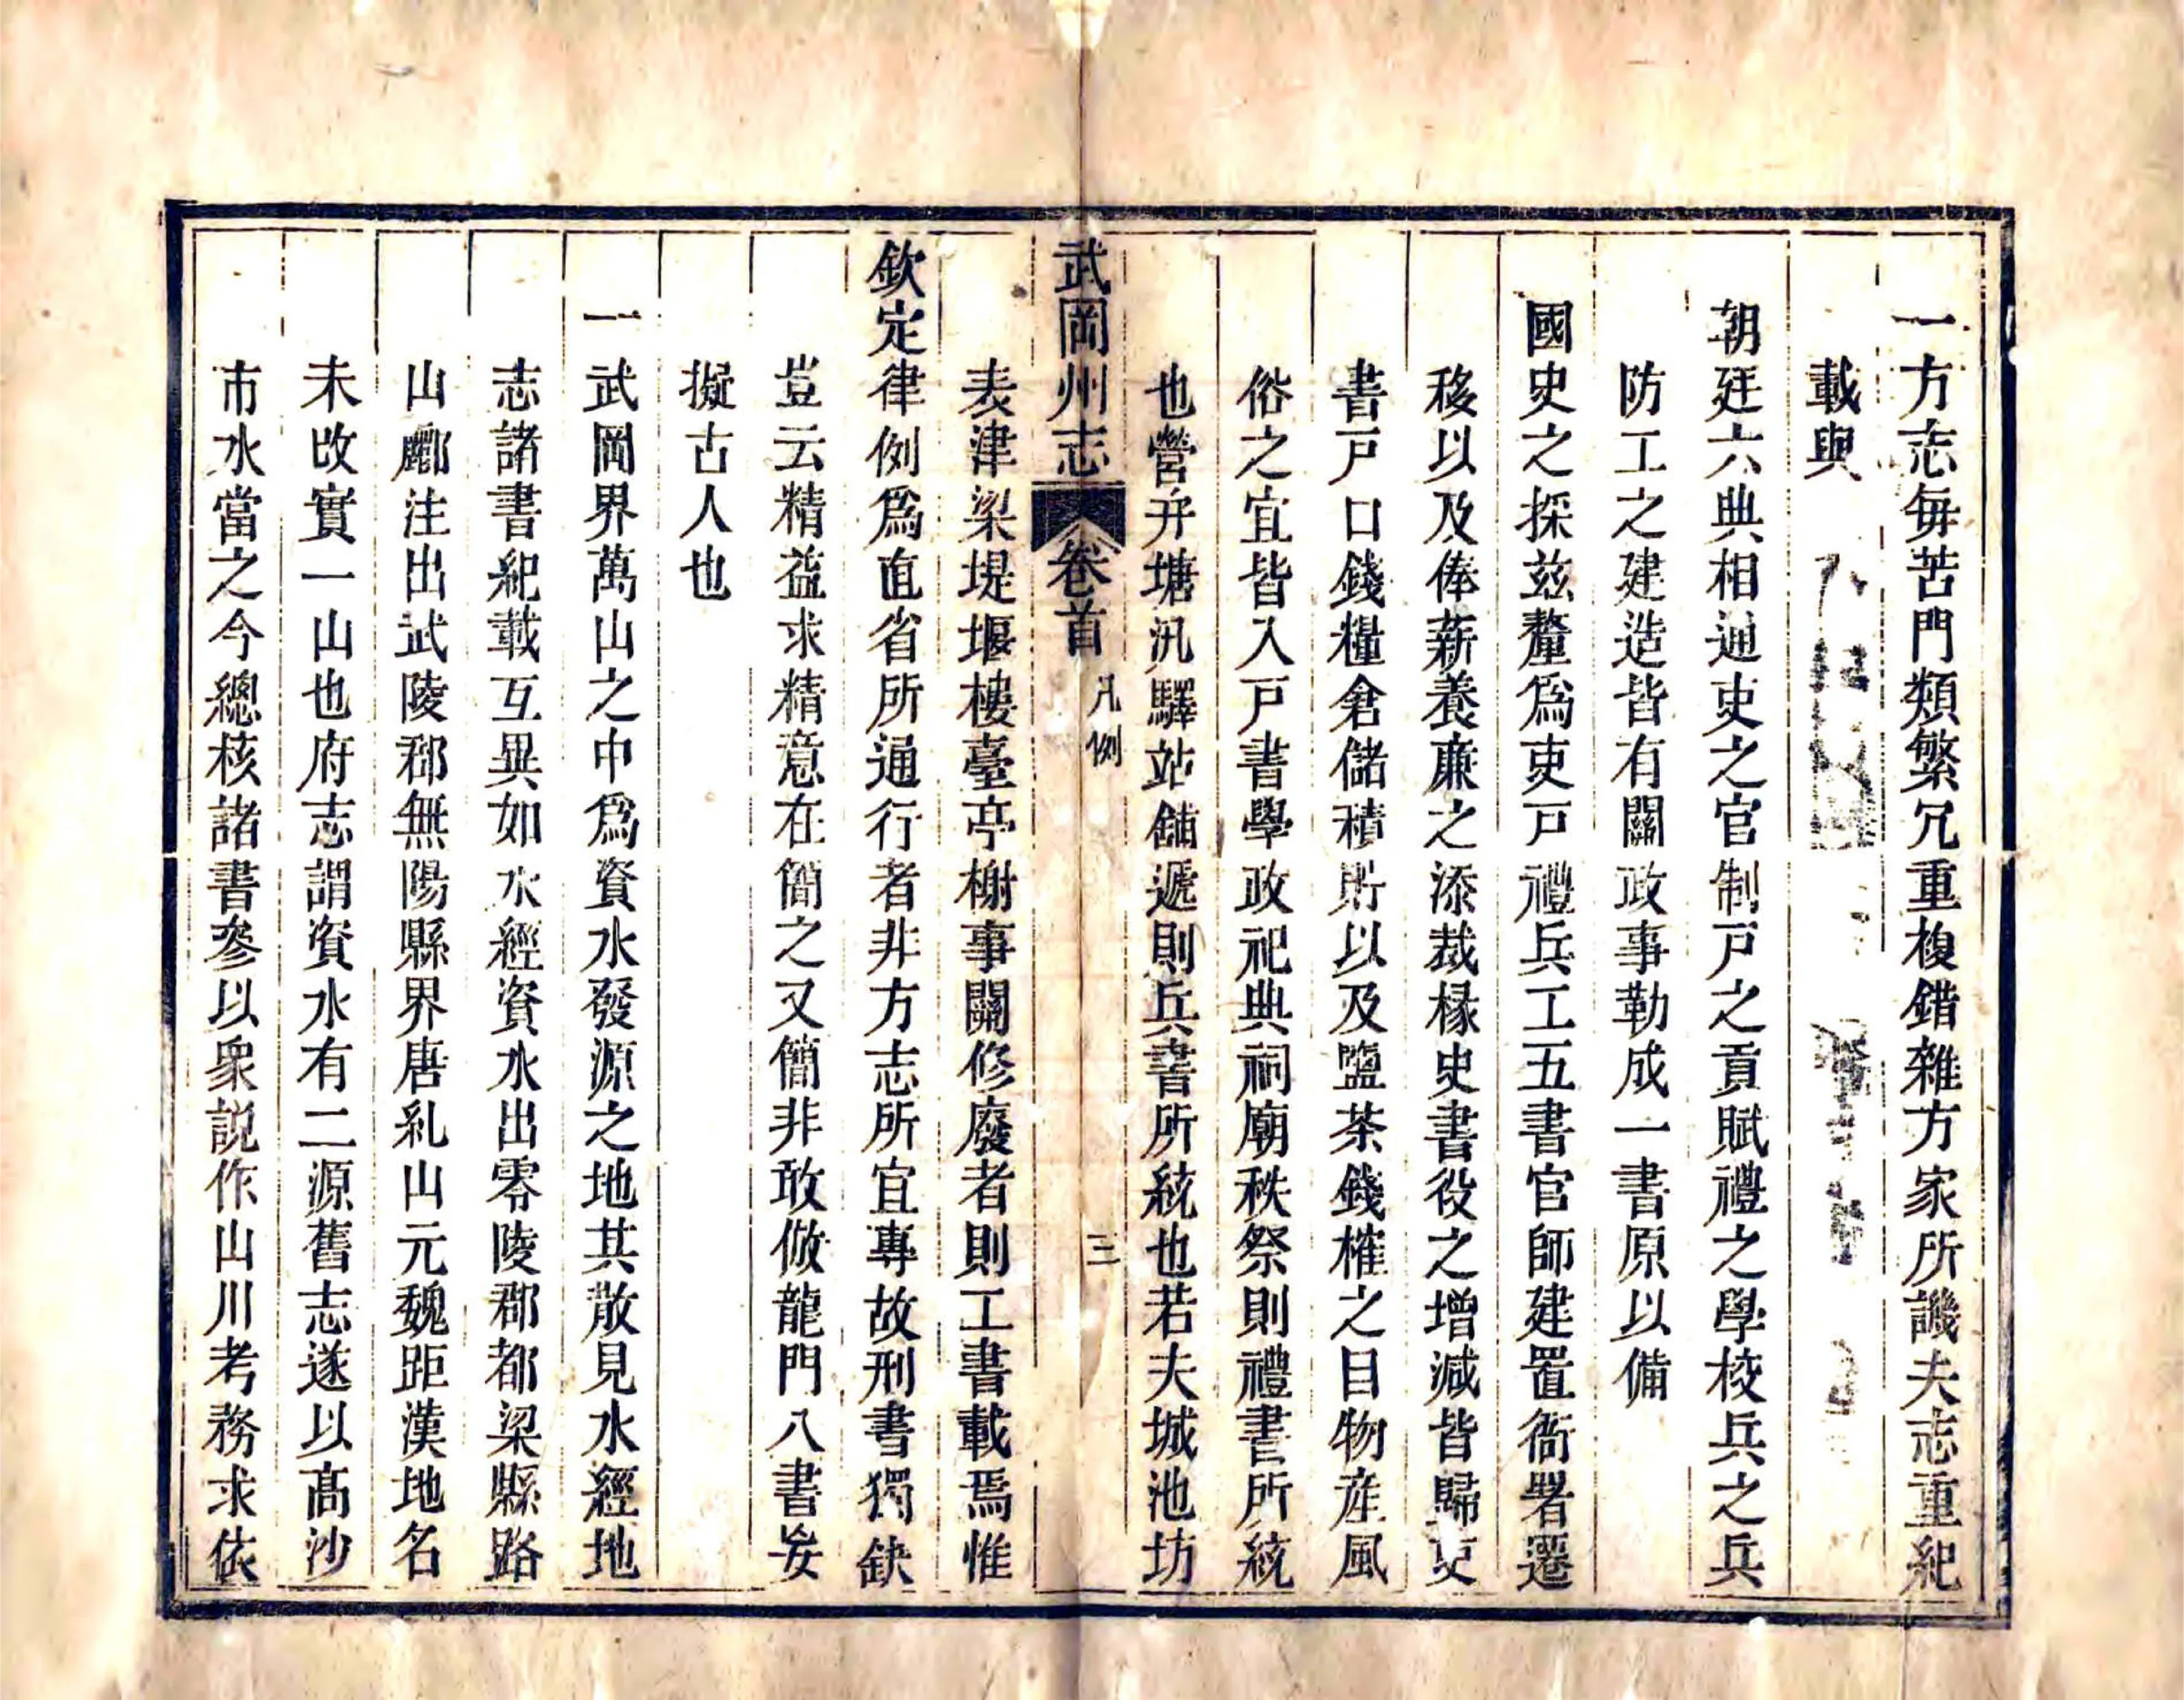 一方志每苦門類繁冗重複錯雜方家所譏夫志重紀
載與
朝廷六典相通吏之官制戸之貢賦禮之學校兵之兵
防工之建造皆有關政事勒成一書原以備
國史之採玆釐爲吏戸禮兵工五書官師建置衙署遷
移以及俸薪養廉之添裁椽史書役之增減皆歸吏
書戸口錢糧倉儲積貯以及鹽茶錢榷之目物産風
俗之宜皆入戸書學政祀典祠廟秩祭則禮書所統
也營弁塘汛驛站舖遞則兵書所統也若夫城池坊
表津梁堤堰樓臺亭榭事關修廢者則工書載焉惟
欽定律例爲直省所通行者非方志所宜專故刑書獨缺
豈云精益求精意在簡之又簡非敢倣龍門八書妄
擬古人也
一武岡界萬山之中爲資水發源之地其散見水經地
志諸書紀載互異如水經資水出零陵郡都梁縣路
山酈注出武陵郡無陽縣界唐糺山元魏距漢地名
未改實一山也府志謂資水有二源舊志遂以高沙
市水當之今總核諸書參以衆説作山川考務求依
武岡州志 卷首 凡例 三